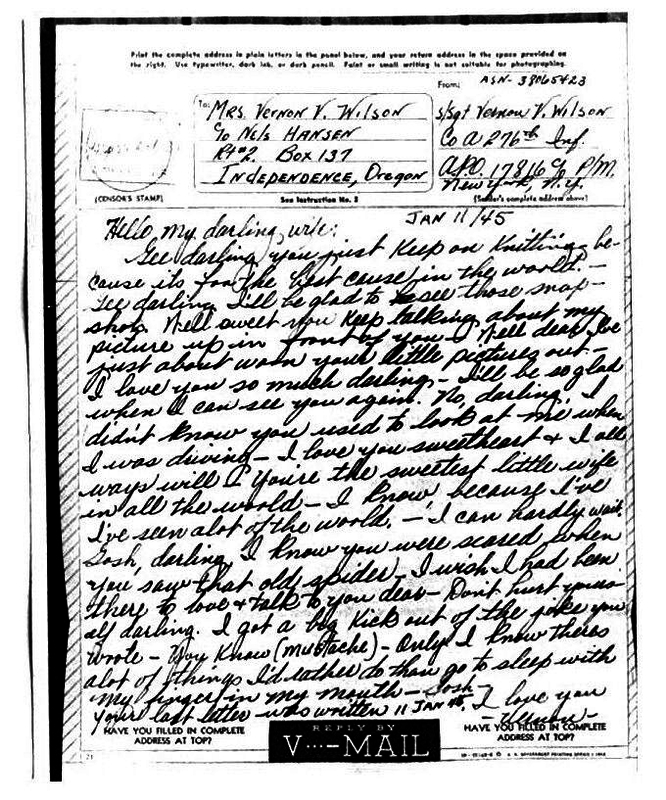 Print the complete address in plain letters in the panel below, and your return address in the space provided on
the right. Use typewriter, dark ink, or dark pencil. Faint or small writing is not suitable for photographing.
ASN- 38065423
To:
From:
MRS. VERNON V. WILSON
C/o Nels HANSEN
Rt #2. Box 137
INDEPENDENCE, Oregon
s/sgt Vernon V. Wilson
Co A 276th Inf.
A.P.O. 17816 C/o P/M.
New York, N.Y.
(CENSOR'S STAMP)
See Instruction No. 2
(Sender's complete address above)
JAN 11/45
Hello, my darling wife:
Gee darling, you just keep on Knitting be-
cause its for the best cause in the world. -
Gee darling I'll be glad to see those snap-
shots. Well sweet you keep talking about my
picture up in front of you - Well dear I've
just about worn your little pictures out. -
I love you so much darling - I'll be so glad
when I can see you again. No, darling, I
didn't know you used to look at me when
I was driving - I love you sweetheart & I all
ways will. You're the sweetest little wife
in all the world - I know, because I've
I've seen alot of the world. - I can hardly wait.
Gosh, darling, I know you were scared when
you saw that old spider - I wish I had been
there to love & talk to you dear - Don't hurt yours
elf darling. I got a big kick out of the joke you
wrote - You know (mustache) - Only I know theres
alot of things I'd rather do than go to sleep with
my finger in my mouth - Gosh
your last letter was written 11 JAN 45. I love you
- Vernon -
HAVE YOU FILLED IN COMPLETE
ADDRESS AT TOP?
REPLY BY
V···–MAIL
HAVE YOU FILLED IN COMPLETE
ADDRESS AT TOP?